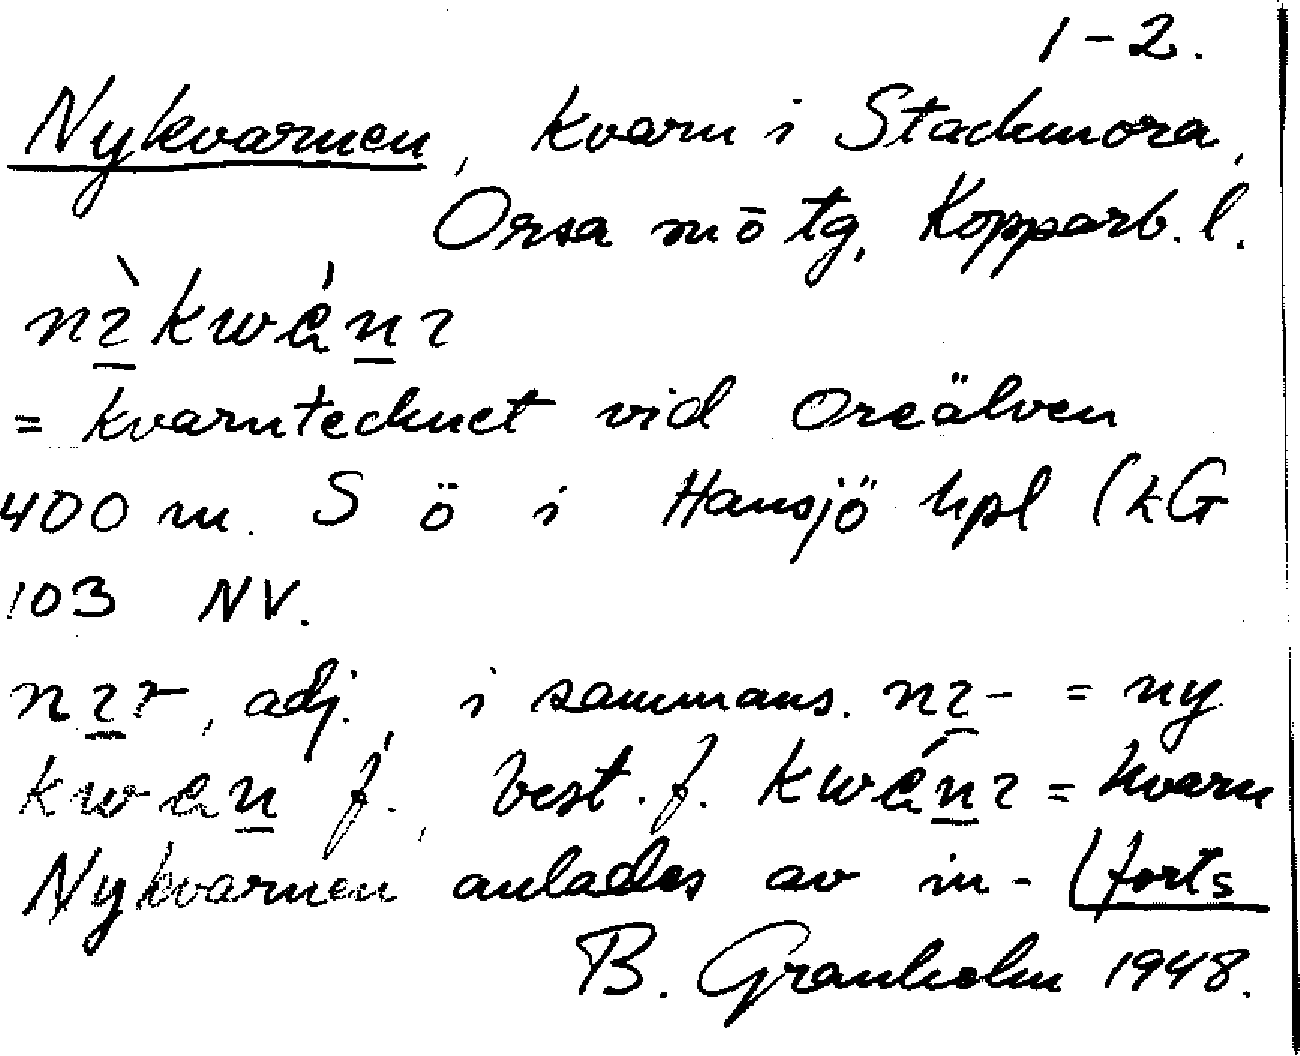 1-2.
Nykvarnen, kvarn i Stackmora,
Orsa sn ö tg, Kopparb. l.
nz̀kwén̲z
= kvarntecknet vid Oreälven
400 m. S ö i Hansjö hpl (kG
103 NV.
nz̲r, adj. i sammans. nz̲- = ny
kwen̲ f., best. f. kwén̲z = kvarn
Nykvarnen anlades av in- (forts
B. Granholm 1948.